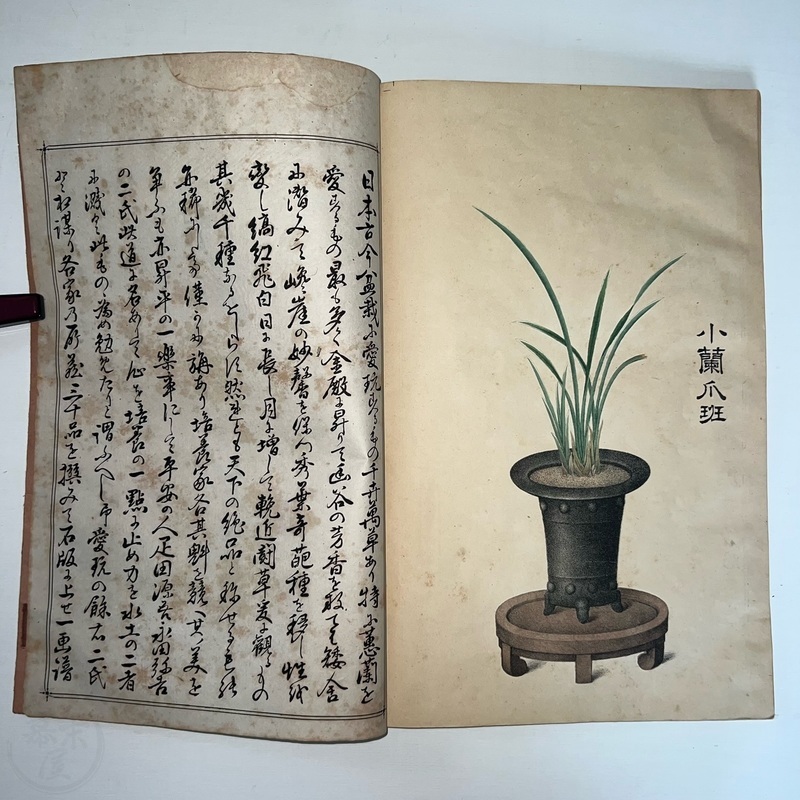 日本古今盆栽に愛玩するもの千卉萬草あり特に蕙蘭を
愛するもの最も多く金殿に昇りて幽谷の芳香を放ち矮舎
に潜みて巉崖の妙馨を保ん秀葉奇葩種を移し性を
変し縞紅飛白日に長し月に増して輓近闘草爰に観るもの
其幾千種なるを然れとも天下の絶品と称せる
亦稀にして僅かに補あり培養家各其魁を競ひ其美を
争ふも亦昇平の一樂事にして平安の人疋田源吉永田弥吉
の二氏此道に名ありて心を培養の一點に止め力を水土の二者
に濺く此もの為め勉めたりと謂ふへし中愛玩の餘右二氏
相謀り各家乃所蔵三十品を撰みて石版に上せ一画譜
小蘭爪班